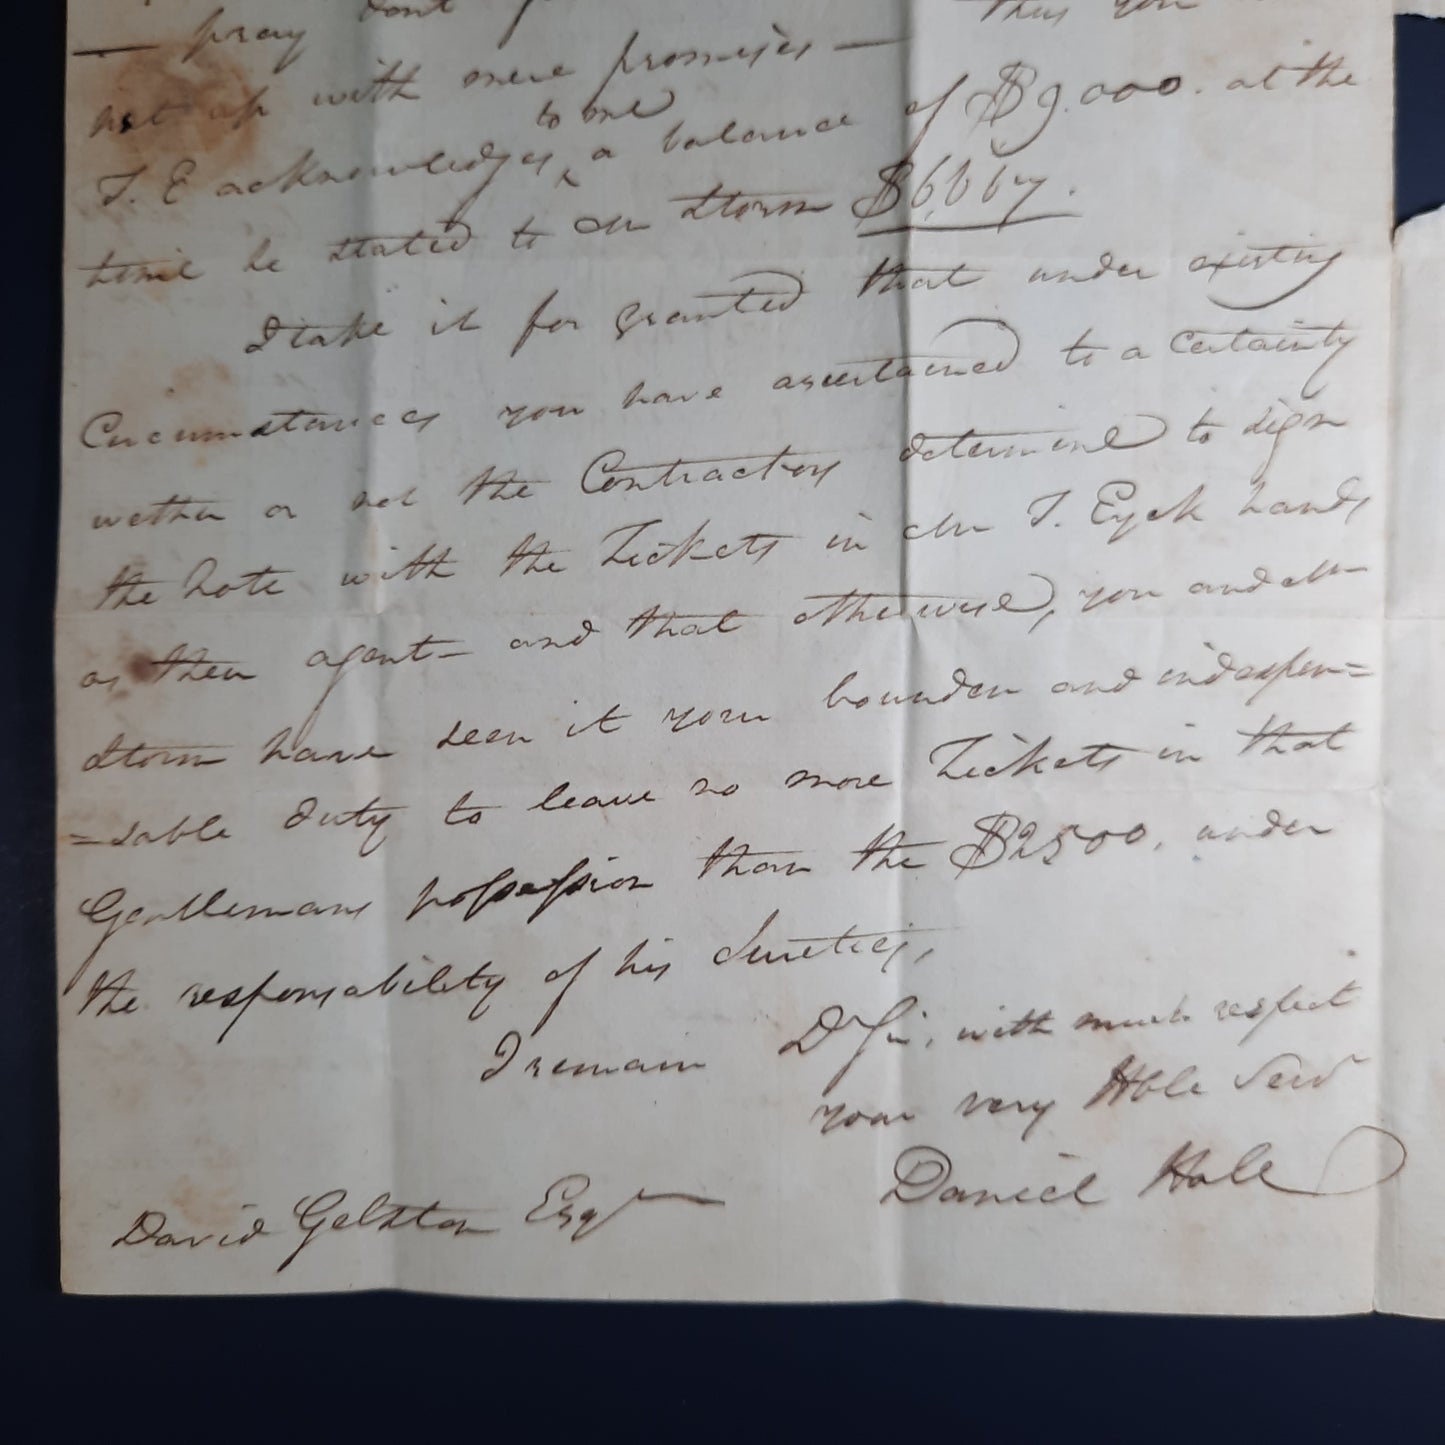 — pray dont
thus you
not up with mere promises —
T. E acknowledges to me a balance of $9.000. at the
time he stated to Mr Storm $6,667.
I take it for granted that under existing
Circumstances you have ascertained to a certainty
wether or not the Contractors determine to sign
the note with the Tickets in Mr T. Eyck hands
as their agent — and that otherwise, you and Mr
Storm have seen it your bounden and indespen=
=sable duty to leave no more Tickets in that
Gentlemans possession than the $2500. under
the responsability of his Sureties,
I remain Dr Sir, with much respect
your very Hble Servt
Daniel Hale
David Gelston Esqr